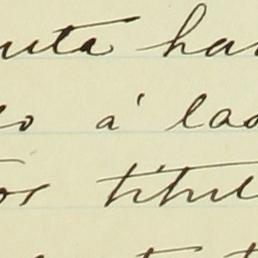 uta ha
o á las
os titul